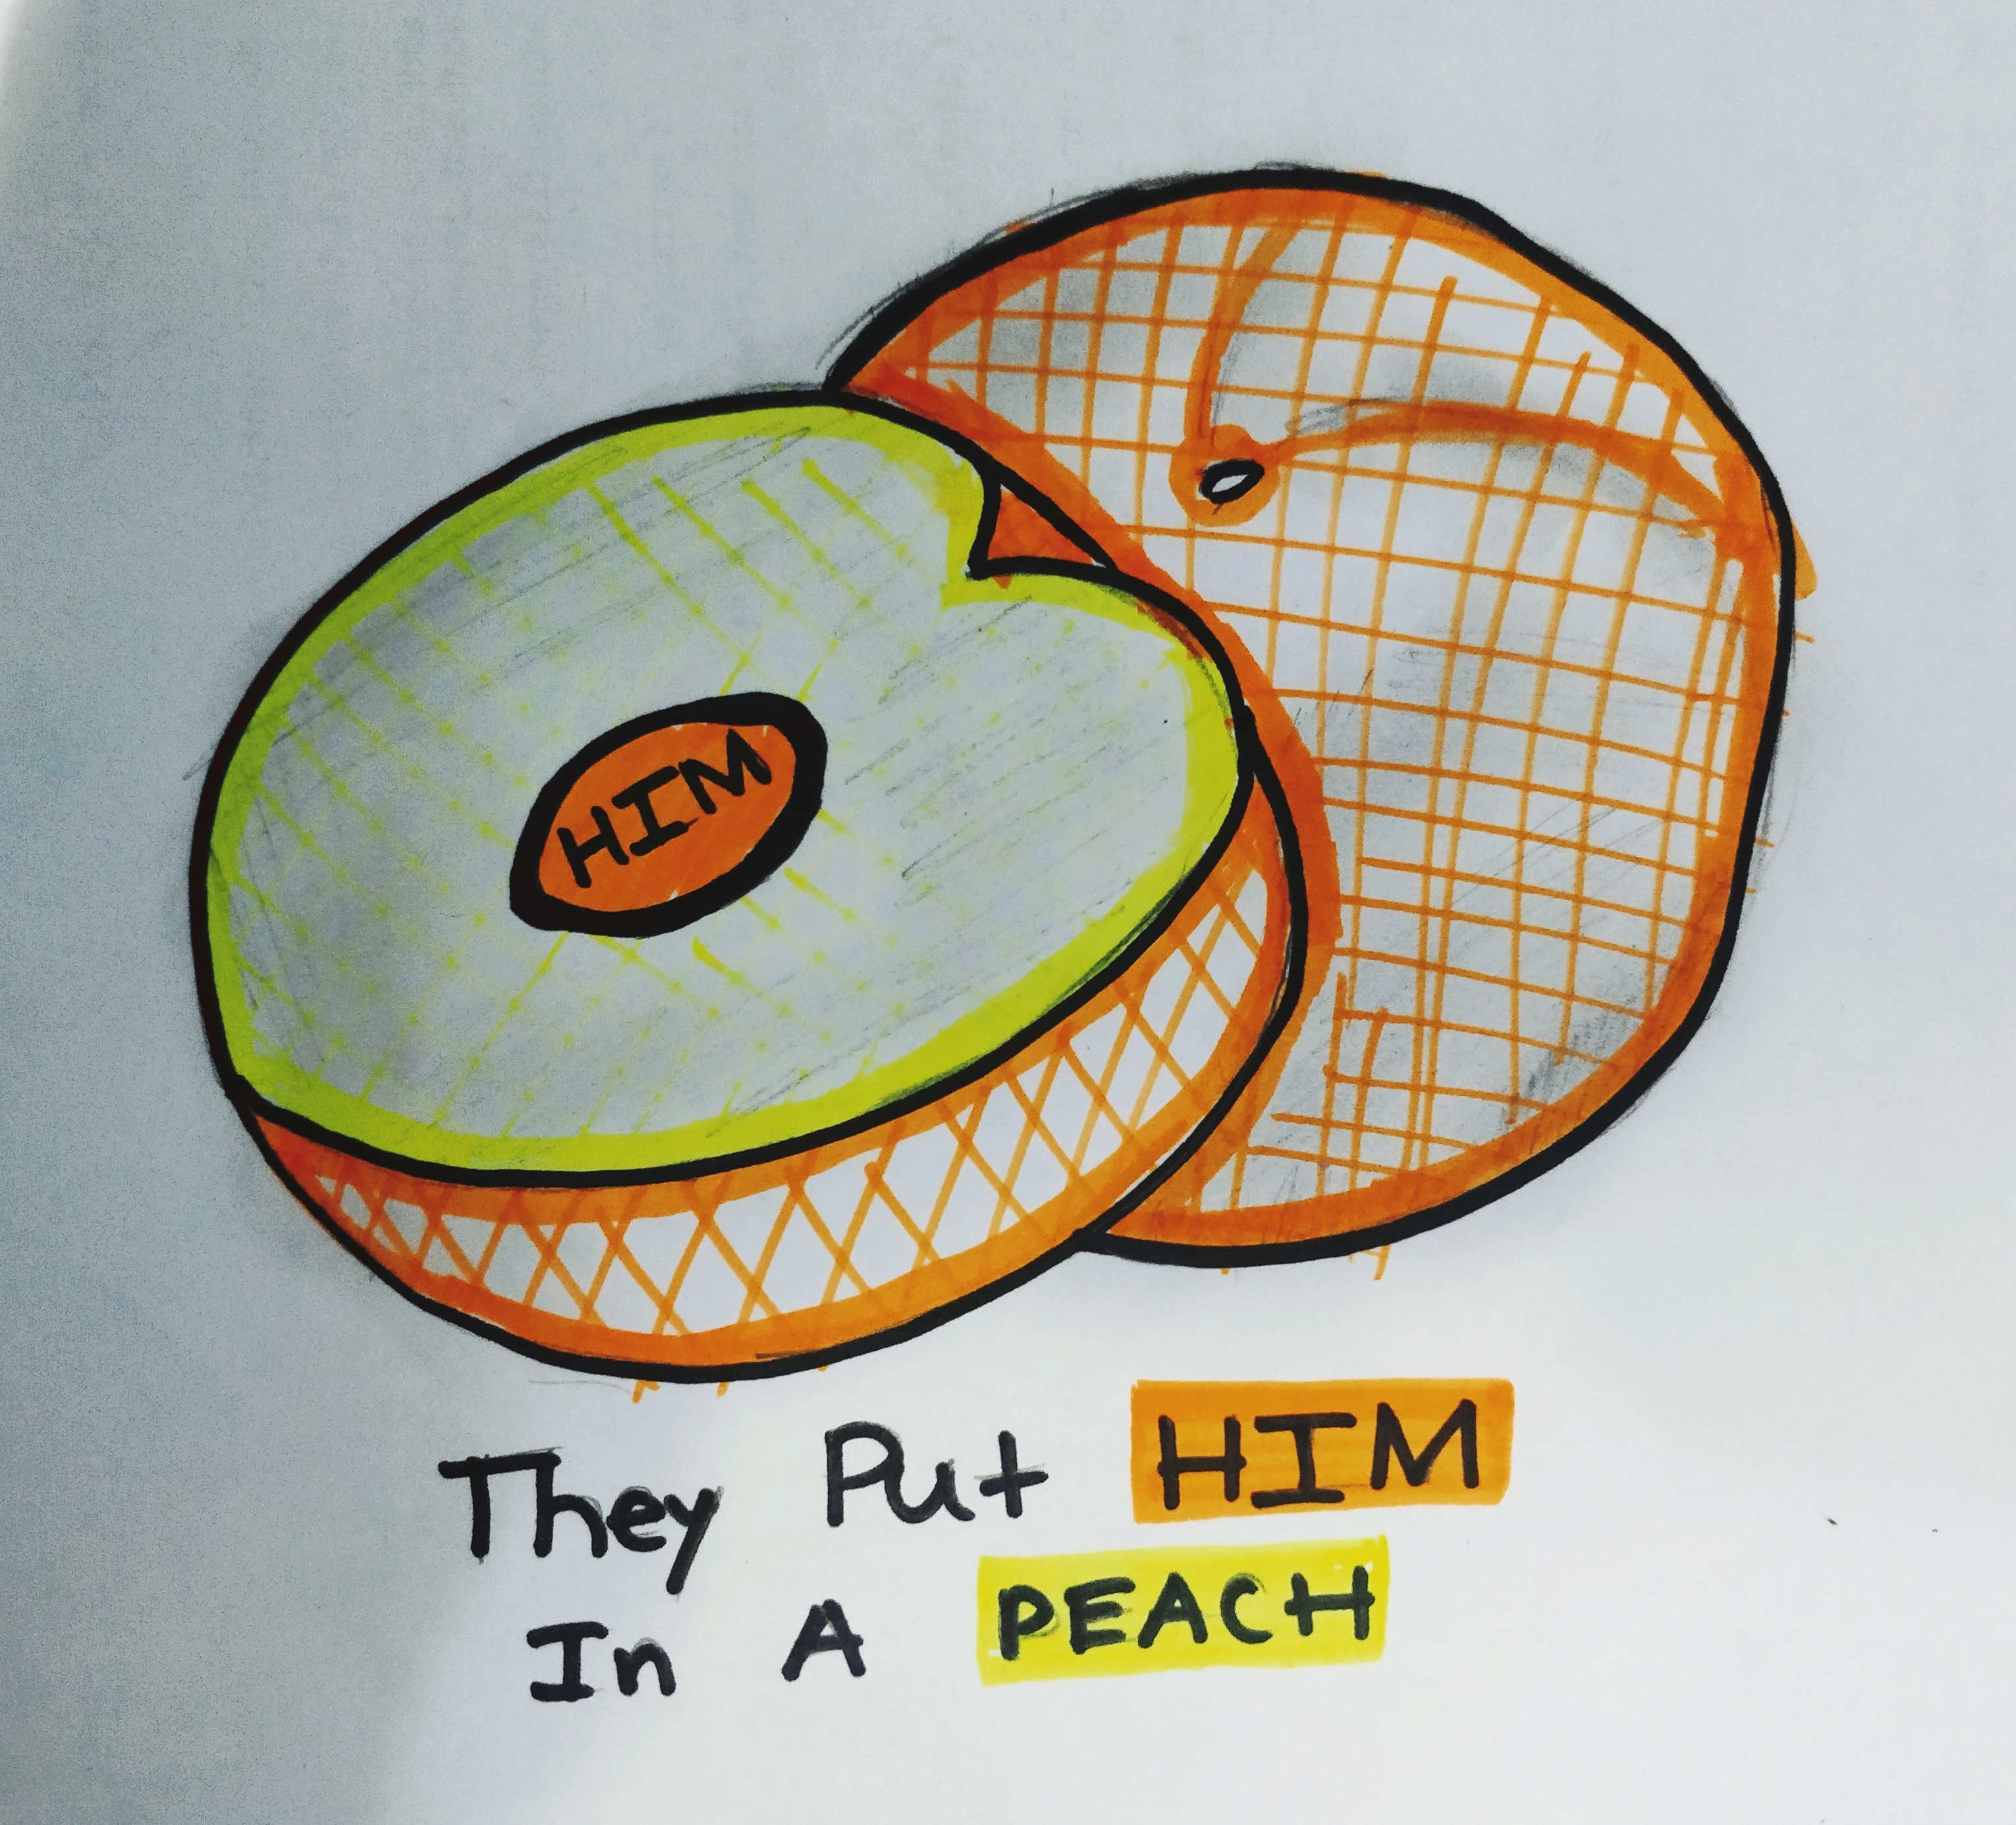 HIM
They Put HIM
In A PEACH